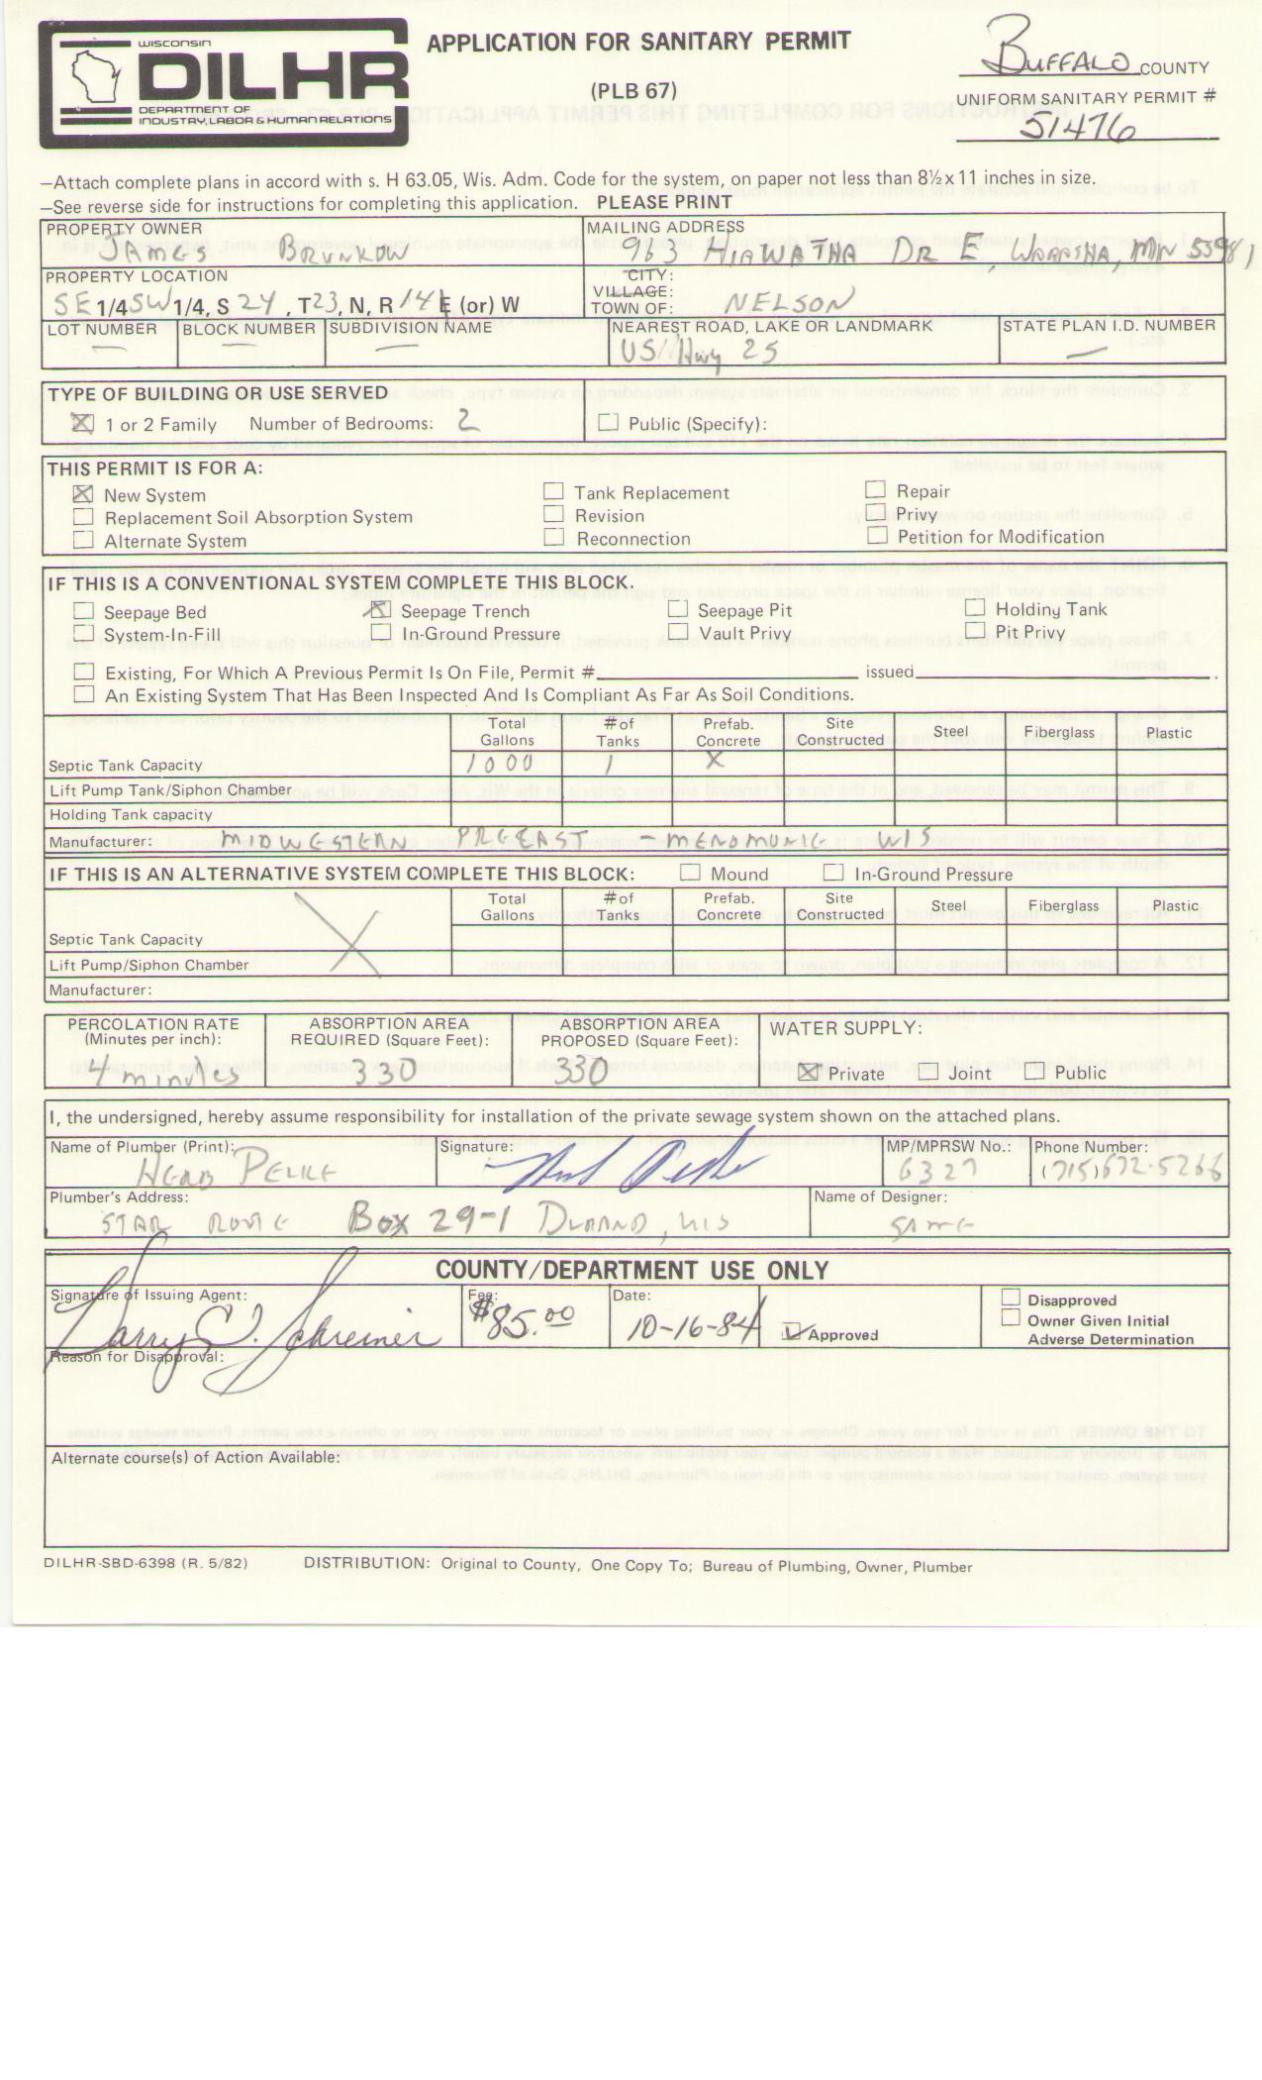 WISCONSIN
DILHR
DEPARTMENT OF
INDUSTRY, LABOR & HUMAN RELATIONS
APPLICATION FOR SANITARY PERMIT
(PLB 67)
BUFFALO COUNTY
UNIFORM SANITARY PERMIT #
51476
—Attach complete plans in accord with s. H 63.05, Wis. Adm. Code for the system, on paper not less than 8½ x 11 inches in size.
—See reverse side for instructions for completing this application. PLEASE PRINT
PROPERTY OWNER MAILING ADDRESS
JAMES BRUNKOW 963 HIAWATHA DR E, WABASHA, MN 55981
PROPERTY LOCATION CITY:
VILLAGE:
SE 1/4 SW 1/4, S 24, T 23, N, R 14 E (or) W TOWN OF: NELSON
LOT NUMBER BLOCK NUMBER SUBDIVISION NAME NEAREST ROAD, LAKE OR LANDMARK STATE PLAN I.D. NUMBER
— — — US Hwy 25 —
TYPE OF BUILDING OR USE SERVED
1 or 2 Family Number of Bedrooms: 2 Public (Specify):
THIS PERMIT IS FOR A:
New System Tank Replacement Repair
Replacement Soil Absorption System Revision Privy
Alternate System Reconnection Petition for Modification
IF THIS IS A CONVENTIONAL SYSTEM COMPLETE THIS BLOCK.
Seepage Bed Seepage Trench Seepage Pit Holding Tank
System-In-Fill In-Ground Pressure Vault Privy Pit Privy
Existing, For Which A Previous Permit Is On File, Permit # issued .
An Existing System That Has Been Inspected And Is Compliant As Far As Soil Conditions.
Total Gallons # of Tanks Prefab. Concrete Site Constructed Steel Fiberglass Plastic
Septic Tank Capacity 1000 1 X
Lift Pump Tank/Siphon Chamber
Holding Tank capacity
Manufacturer: MIDWESTERN PRECAST - MENOMONIE WIS
IF THIS IS AN ALTERNATIVE SYSTEM COMPLETE THIS BLOCK: Mound In-Ground Pressure
Total Gallons # of Tanks Prefab. Concrete Site Constructed Steel Fiberglass Plastic
Septic Tank Capacity
Lift Pump/Siphon Chamber
Manufacturer:
PERCOLATION RATE ABSORPTION AREA ABSORPTION AREA WATER SUPPLY:
(Minutes per inch): REQUIRED (Square Feet): PROPOSED (Square Feet):
4 minutes 330 330 Private Joint Public
I, the undersigned, hereby assume responsibility for installation of the private sewage system shown on the attached plans.
Name of Plumber (Print): Signature: MP/MPRSW No.: Phone Number:
HERB PELKE 6327 (715) 672-5266
Plumber's Address: Name of Designer:
STAR ROUTE BOX 29-1 DURAND, WIS SAME
COUNTY/DEPARTMENT USE ONLY
Signature of Issuing Agent: Fee: Date: Disapproved
Larry D. Schreiner $85.00 10-16-84 Approved Owner Given Initial
Adverse Determination
Reason for Disapproval:
Alternate course(s) of Action Available:
DILHR-SBD-6398 (R. 5/82) DISTRIBUTION: Original to County, One Copy To; Bureau of Plumbing, Owner, Plumber